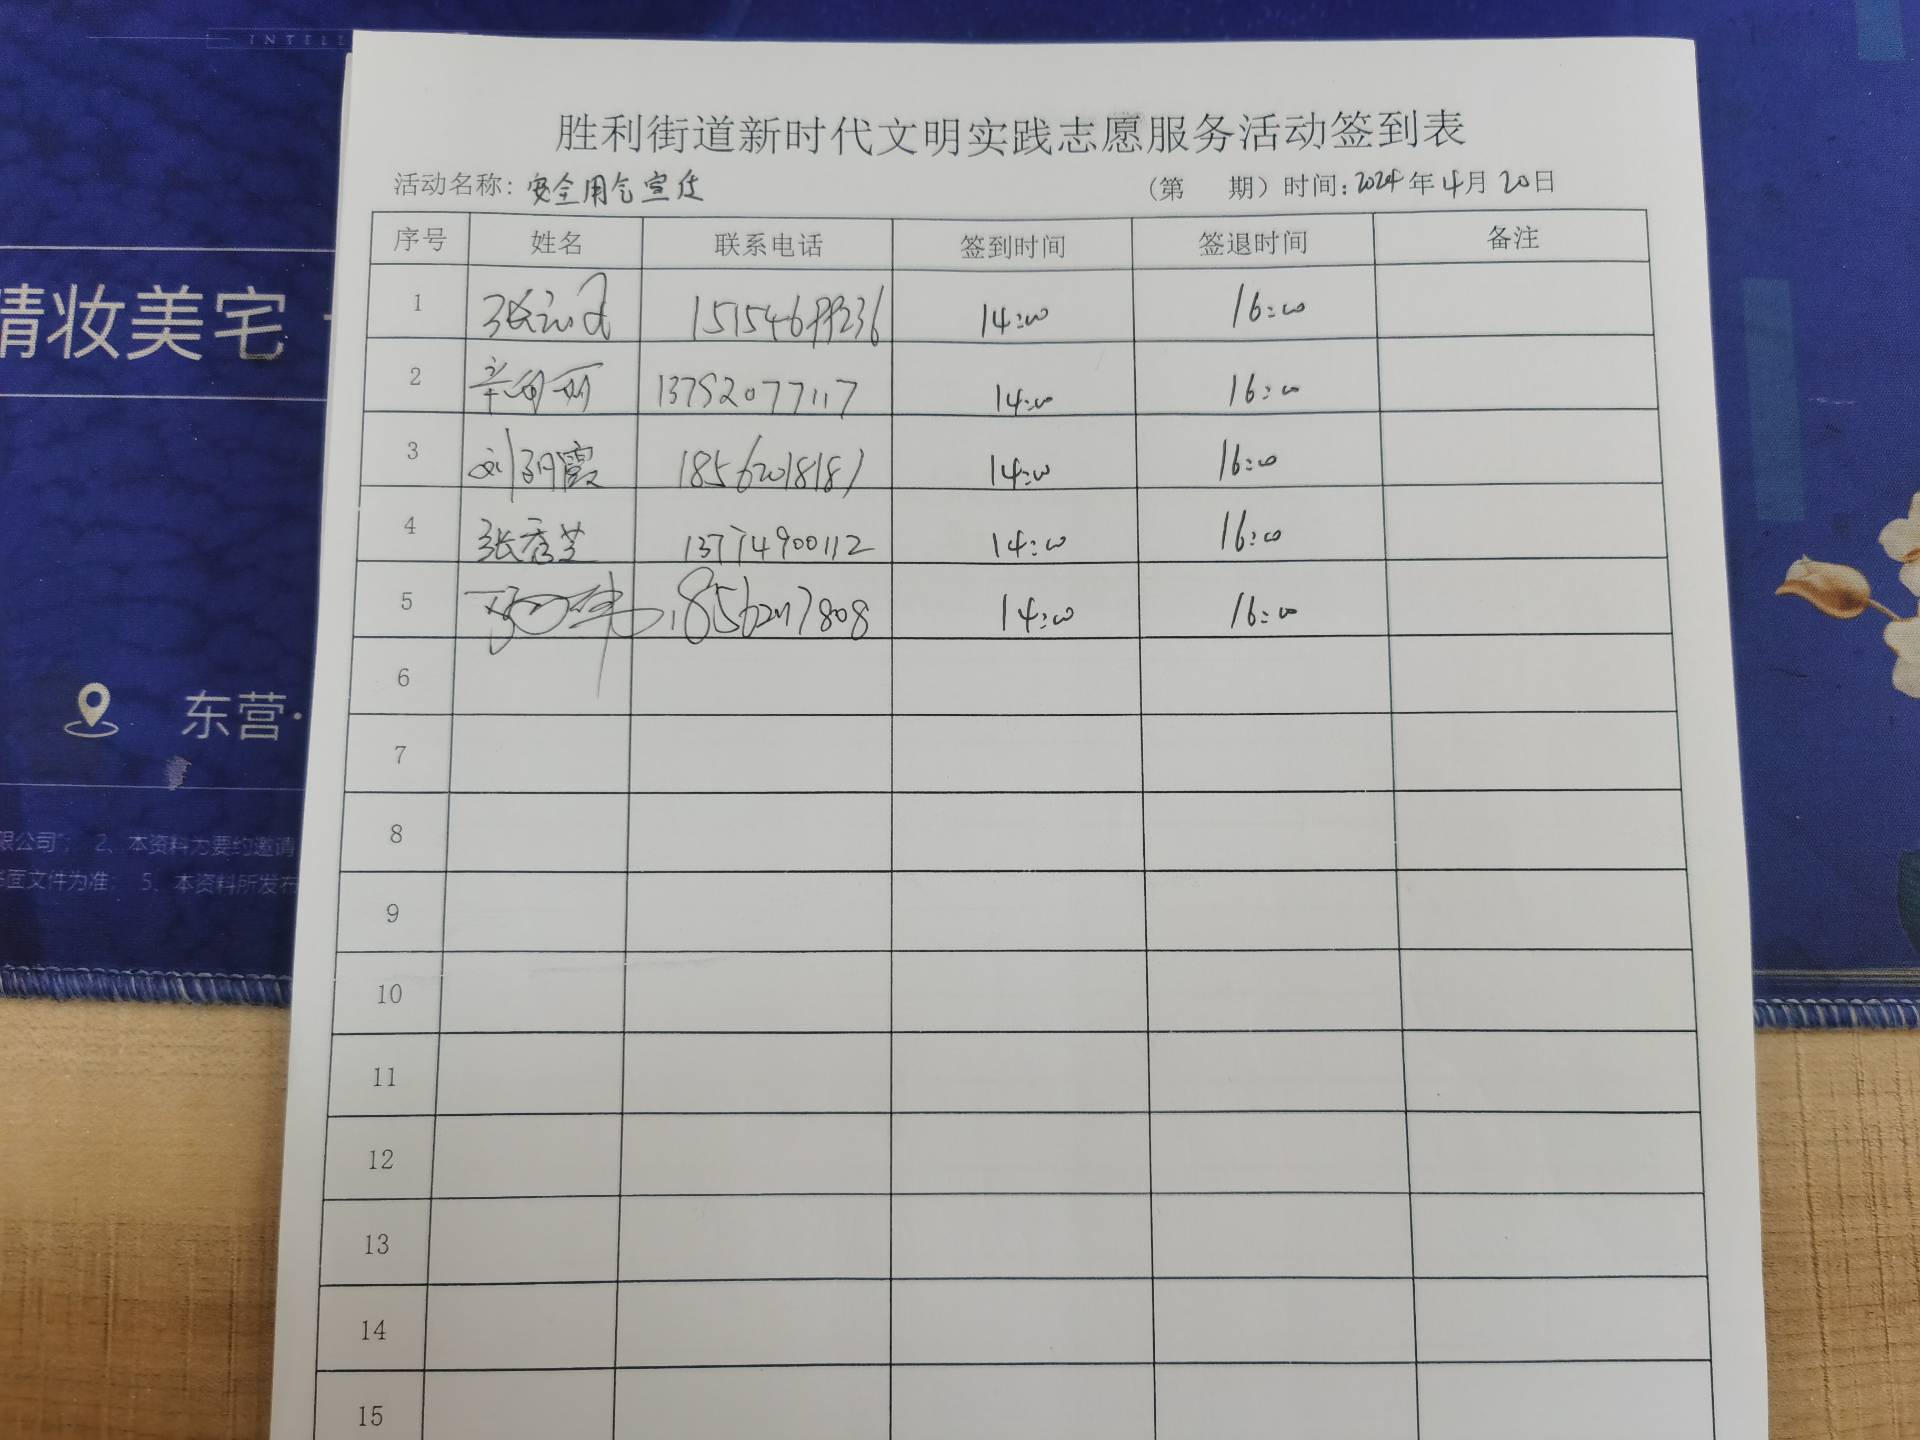 INTELL
胜利街道新时代文明实践志愿服务活动签到表
活动名称：安全用气宣传 （第 期）时间：2024年4月20日
序号 姓名 联系电话 签到时间 签退时间 备注
1 14:00 16:00
2 13792077117 14:00 16:00
3 刘 霞 18562018181 14:00 16:00
4 张秀芝 14:00 16:00
5 14:00 16:00
6
7
8
9
10
11
12
13
14
15
精妆美宅
东营·
限公司"； 2、本资料为要约邀请
面文件为准； 5、本资料所发布